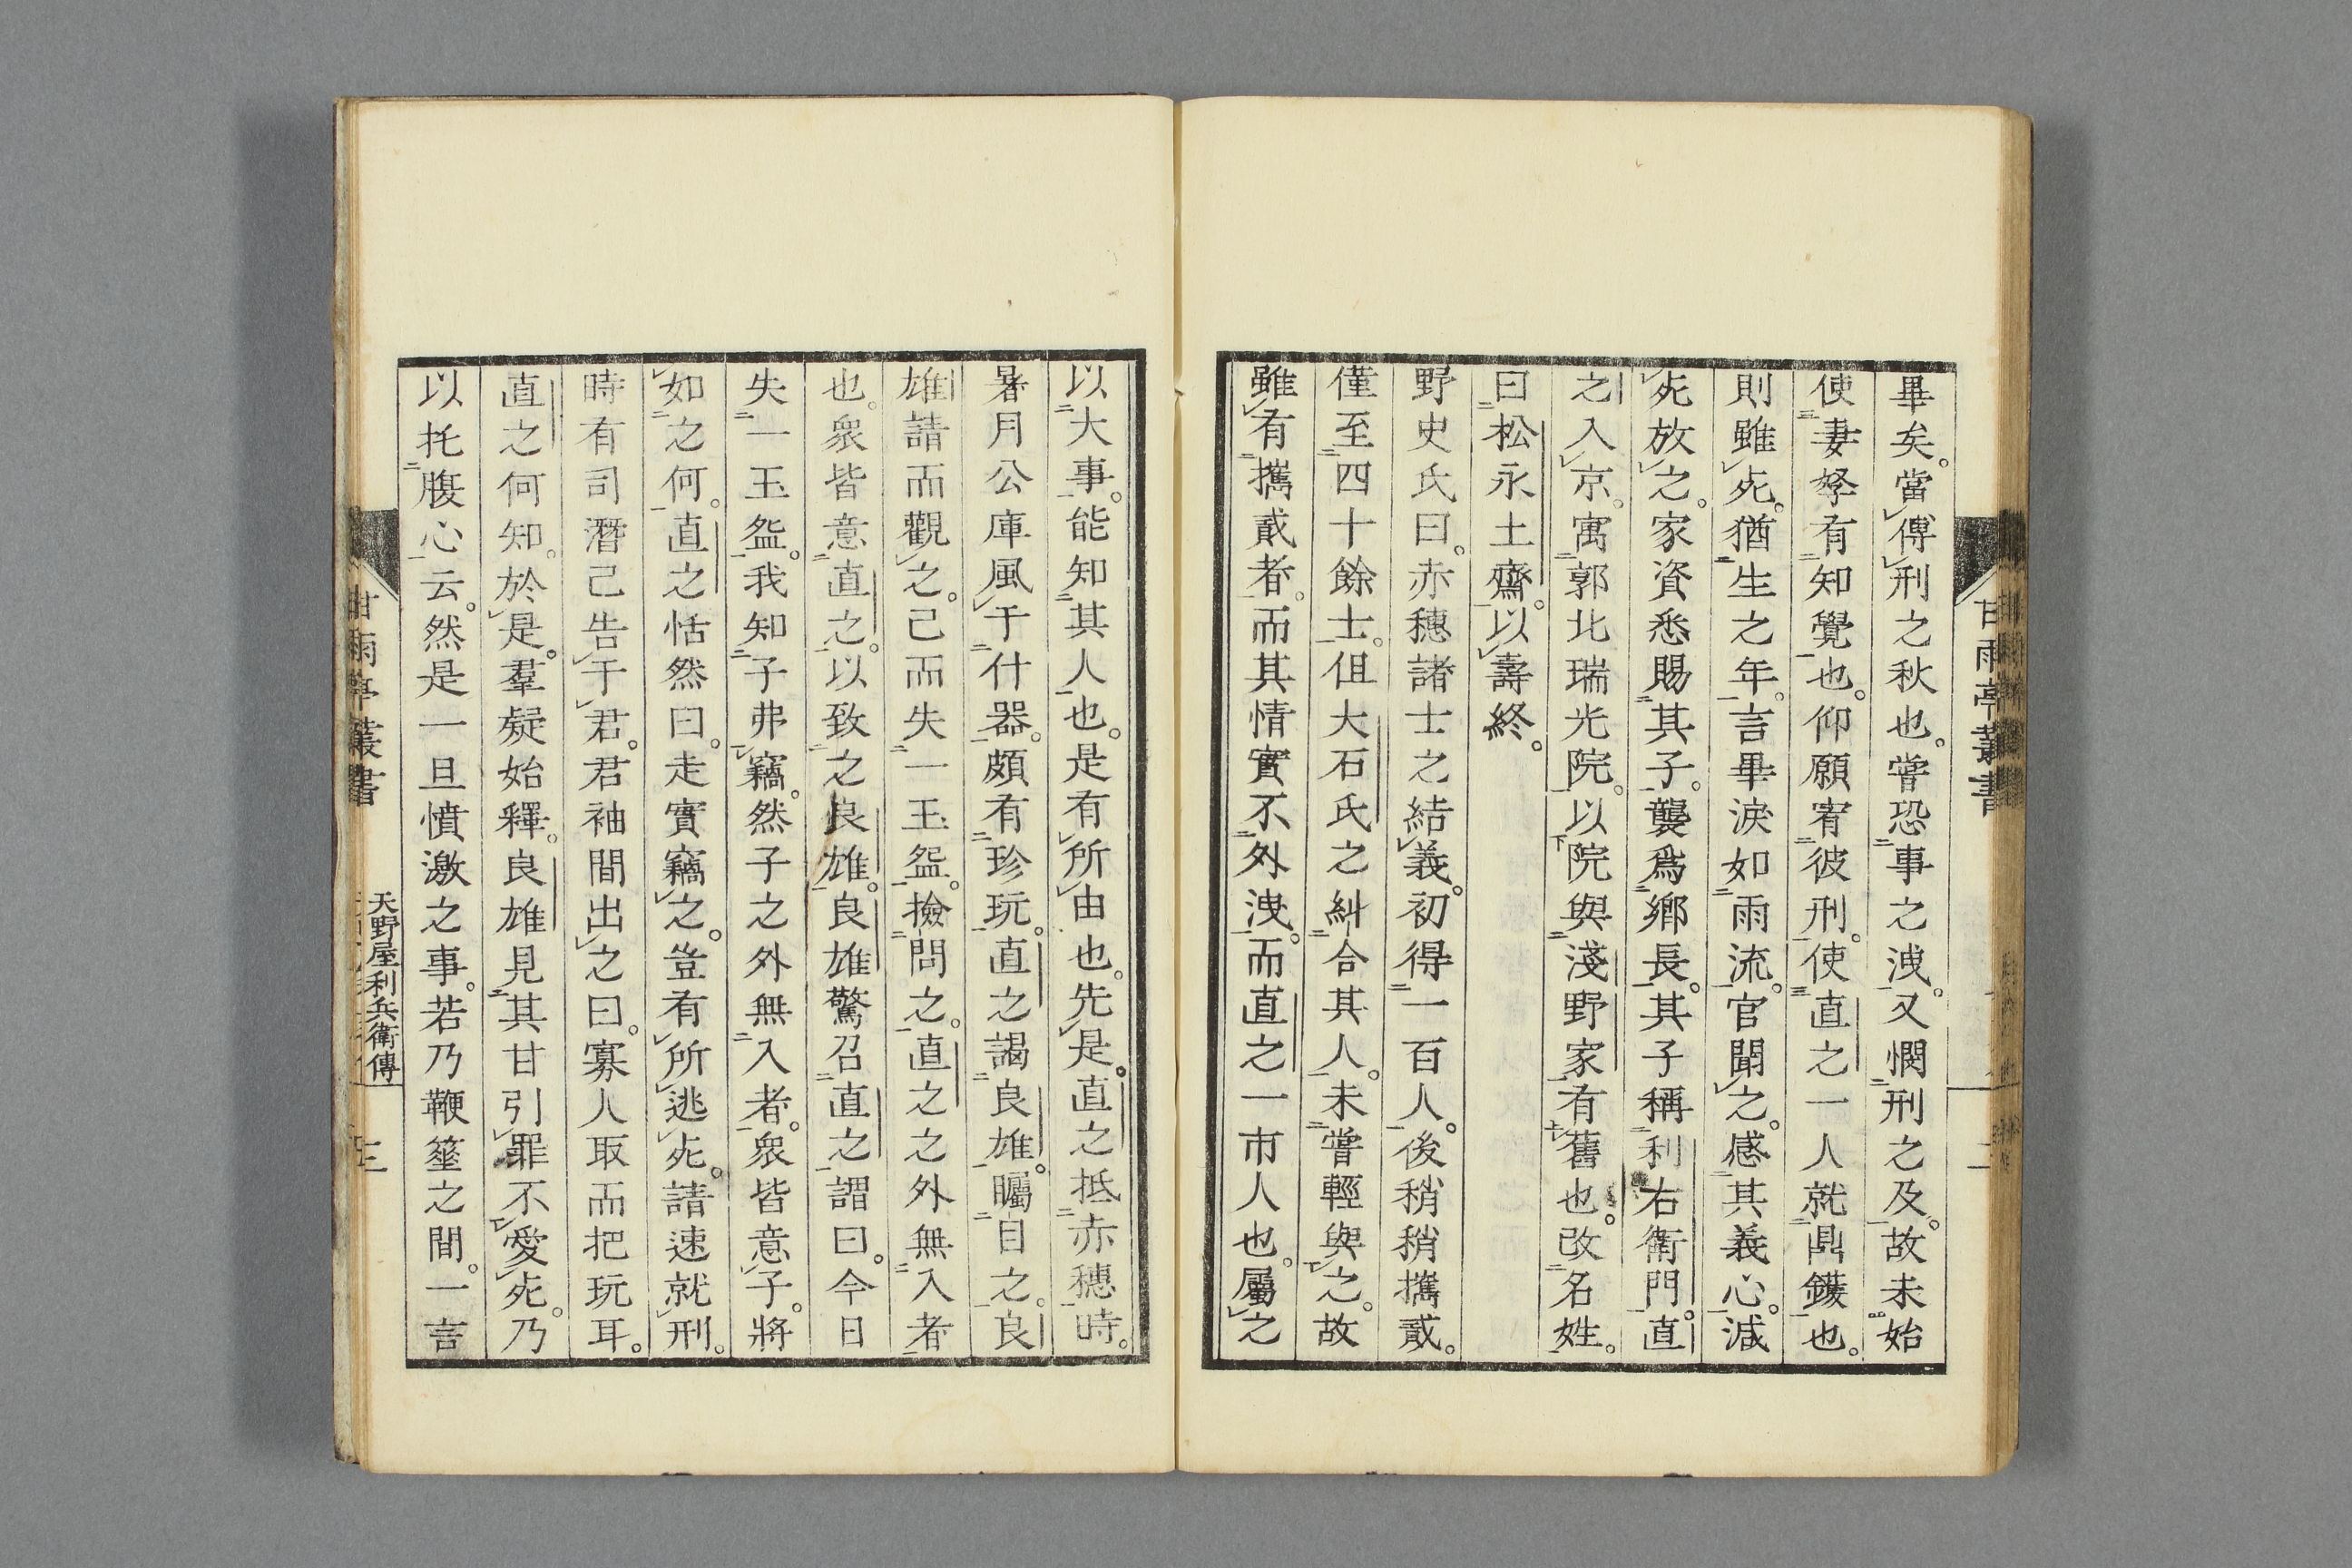 畢矣。當傅刑之秋也。嘗恐事之洩。又憫刑之及。故未始
使妻孥有知覺也。仰願宥彼刑。使直之一人就鼎鑊也。
則雖死。猶生之年。言畢淚如雨流。官聞之。感其義心。減
死放之。家資悉賜其子。襲爲鄉長。其子稱利右衛門。直
之入京。寓郭北瑞光院。以院與淺野家有舊也。改名姓。
曰松永土齋。以壽終。
野史氏曰。赤穗諸士之結義。初得一百人。後稍稍攜貳。
僅至四十餘士。但大石氏之糾合其人。未嘗輕與之。故
雖有攜貳者。而其情實不外洩。而直之一市人也。屬之
甘雨亭叢書
二
以大事。能知其人也。是有所由也。先是。直之抵赤穗時。
暑月公庫風于什器。頗有珍玩。直之謁良雄。矚目之。良
雄請而觀之。己而失一玉盌。撿問之。直之之外無入者
也。衆皆意直之。以致之良雄。良雄驚召直之謂曰。今日
失一玉盌。我知子弗竊。然子之外無入者。衆皆意子。將
如之何。直之恬然曰。走實竊之。豈有所逃死。請速就刑。
時有司潛己告于君。君袖間出之曰。寡人取而把玩耳。
直之何知。於是。羣疑始釋。良雄見其甘引罪不愛死。乃
以托腹心云。然是一旦憤激之事。若乃鞭箠之間。一言
甘雨亭叢書
天野屋利兵衛傳
三